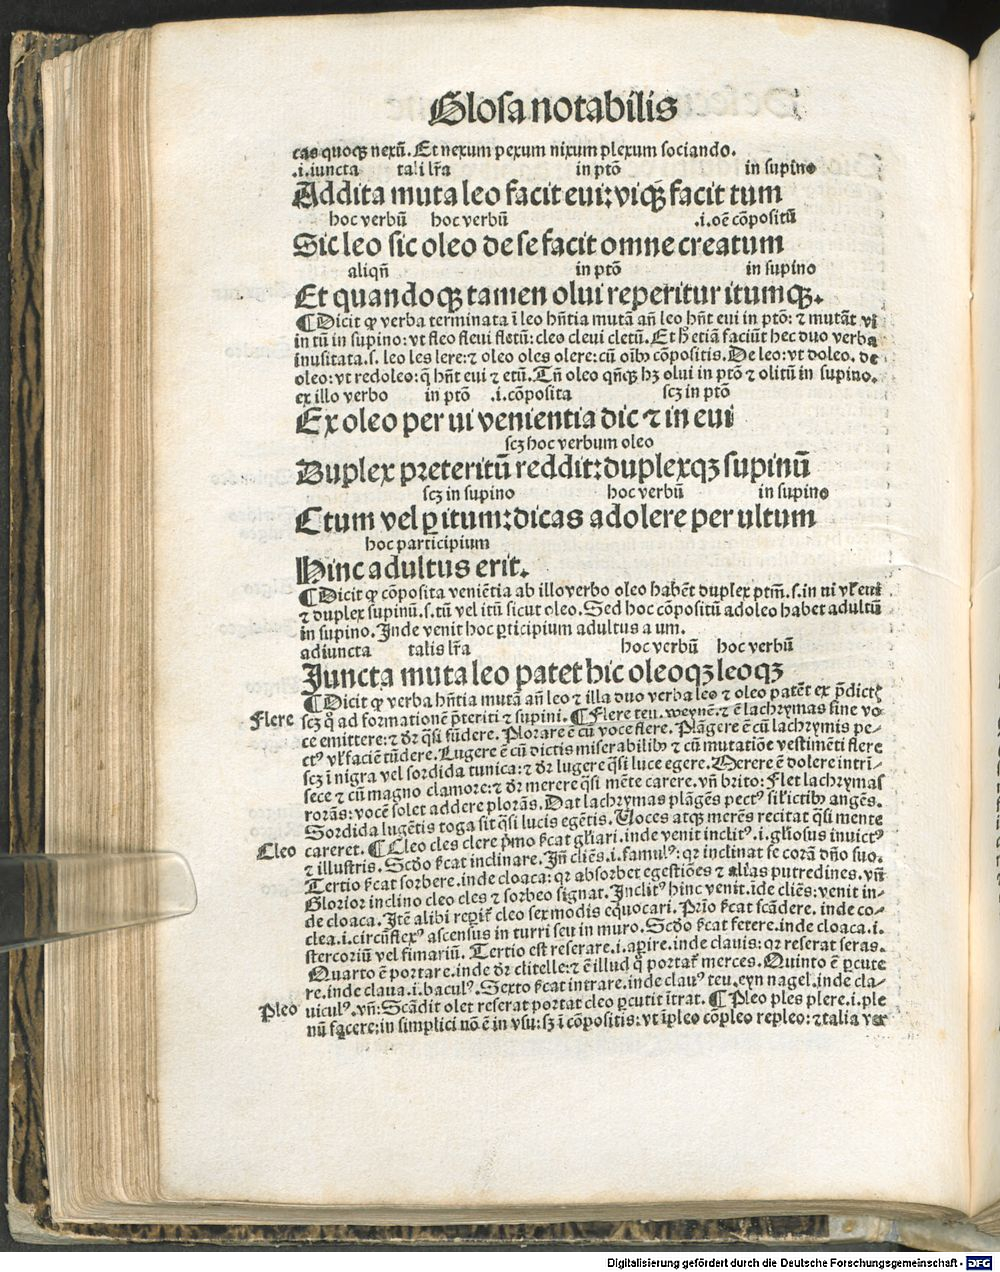 Glosa notabilis
cas quoqꝫ nexū. Et nexum pexum nixum plexum sociando.
.i. iuncta tali lr̄a in ptō in supino
Addita muta leo facit eui: viqꝫ facit tum
hoc verbū hoc verbū .i. oē cōpositū
Sic leo sic oleo de se facit omne creatum
aliqn̄ in ptō in supino
Et quandoqꝫ tamen olui reperitur itumqꝫ.
¶ Dicit ꝙ verba terminata ī leo hn̄tia mutā an̄ leo hn̄t eui in ptō: ⁊ mutāt vi
in tū in supino: vt fleo fleui fletū: cleo cleui cletū. Et h̄ etiā faciūt hec duo verba
inusitata. s. leo les lere: ⁊ oleo oles olere: cū oībꝰ cōpositis. De leo: vt doleo. de
oleo: vt redoleo: q̄ hn̄t eui ⁊ etū. Tn̄ oleo qn̄qꝫ hꝫ olui in ptō ⁊ olitū in supino.
ex illo verbo in ptō .i. cōposita scꝫ in ptō
Ex oleo per ui venientia dic ⁊ in eui
scꝫ hoc verbum oleo
Duplex preteritū reddit: duplexqꝫ supinū
scꝫ in supino hoc verbū in supino
Etum vel ꝑ itum: dicas adolere per ultum
hoc participium
Hinc adultus erit.
¶ Dicit ꝙ cōposita veniētia ab illo verbo oleo habēt duplex ptm̄. s. in ui vꝉ eui
⁊ duplex supinū. s. tū vel itū sicut oleo. Sed hoc cōpositū adoleo habet adultū
in supino. Inde venit hoc ꝑticipium adultus a um.
adiuncta talis lr̄a hoc verbū hoc verbū
Juncta muta leo patet hic oleoqꝫ leoqꝫ
¶ Dicit ꝙ verba hn̄tia mutā an̄ leo ⁊ illa duo verba leo ⁊ oleo patēt ex p̄dictꝭ
Flere scꝫ q̊ ad formationē p̄teriti ⁊ supini. ¶ Flere teu. weynē. ⁊ ē lachrymas sine vo-
ce emittere: ⁊ dr̄ q̄si fūdere. Plorare ē cū voce flere. Plāgere ē cū lachrymis pe-
ctꝰ vꝉ faciē tūdere. Lugere ē cū dictis miserabilibꝰ ⁊ cū mutatiōe vestimēti flere
scꝫ ī nigra vel sordida tunica: ⁊ dr̄ lugere q̄si luce egere. Merere ē dolere intrī-
sece ⁊ cū magno clamore: ⁊ dr̄ merere q̄si mēte carere. vn̄ brito: Flet lachrymas
rorās: vocē solet addere plorās. Dat lachrymas plāgēs pectꝰ siꝉ ictibꝰ angēs.
Sordida lugētis toga sit q̄si lucis egētis. Voces atqꝫ merēs recitat q̄si mente
Cleo careret. ¶ Cleo cles clere p̄mo ſcat gl̄iari. inde venit inclitꝰ. i. gl̄iosus inuictꝰ
⁊ illustris. Scd̄o ſcat inclinare. Jn̄ cliēs. i. famulꝰ: qꝛ inclinat se corā dn̄o suo.
Tertio ſcat sorbere. inde cloaca: qꝛ absorbet egestiōes ⁊ alias putredines. vn̄
Glorior inclino cleo cles ⁊ sorbeo signat. Inclitꝰ hinc venit. īde cliēs: venit in-
de cloaca. Jtē alibi reꝑit̄ cleo sex modis equocari. Prīo ſcat scādere. inde co-
clea. i. circūflexꝰ ascensus in turri seu in muro. Scd̄o ſcat fetere. inde cloaca. i.
stercoriū vel fimariū. Tertio est reserare. i. aꝑire. inde clauis: qꝛ reserat seras.
Quarto ē portare. inde dr̄ clitelle: ⁊ ē illud q̊ portat̄ merces. Quinto ē ꝑcute
re. inde claua. i. baculꝰ. Sexto ſcat intrare. inde clauꝰ teu. eyn nagel. inde cla-
Pleo uiculꝰ. vn̄: Scādit olet reserat portat cleo ꝑcutit īt̄rat. ¶ Pleo ples plere. i. ple
nū facere: in simplici nō ē in vsu: sꝫ ī cōpositis: vt īpleo cōpleo repleo: ⁊ talia ver
Digitalisierung gefördert durch die Deutsche Forschungsgemeinschaft - DFG